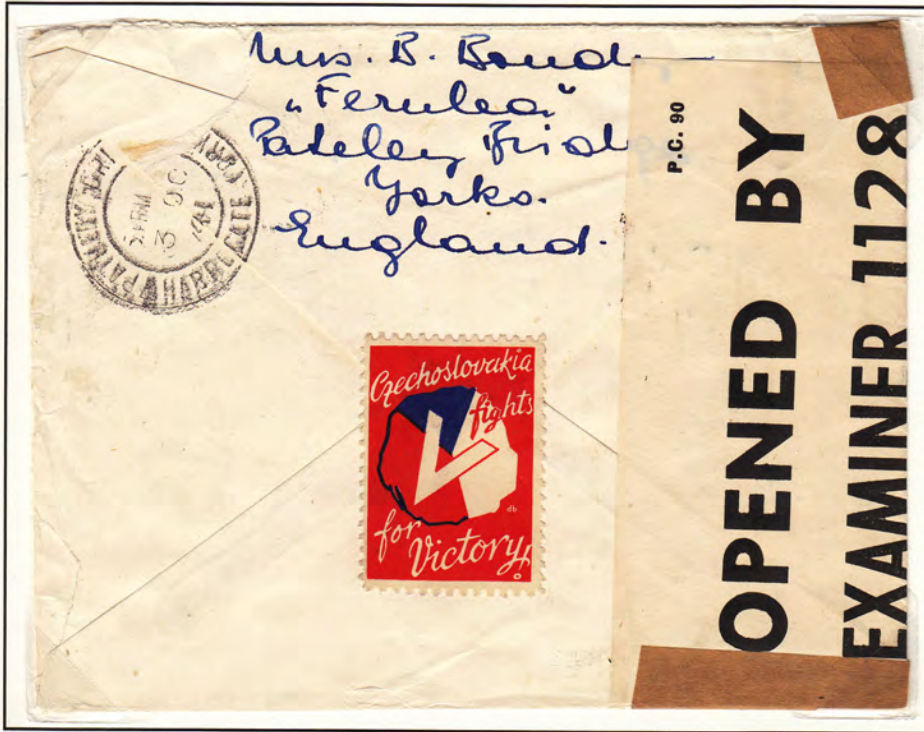 Mrs. B. Bond
"Fernlea"
Pateley Brid
Yorks.
England.
HARROGATE YORK
3 OC
41
Czechoslovakia
fights
for
Victory!
db
P.C. 90
OPENED BY
EXAMINER 1128